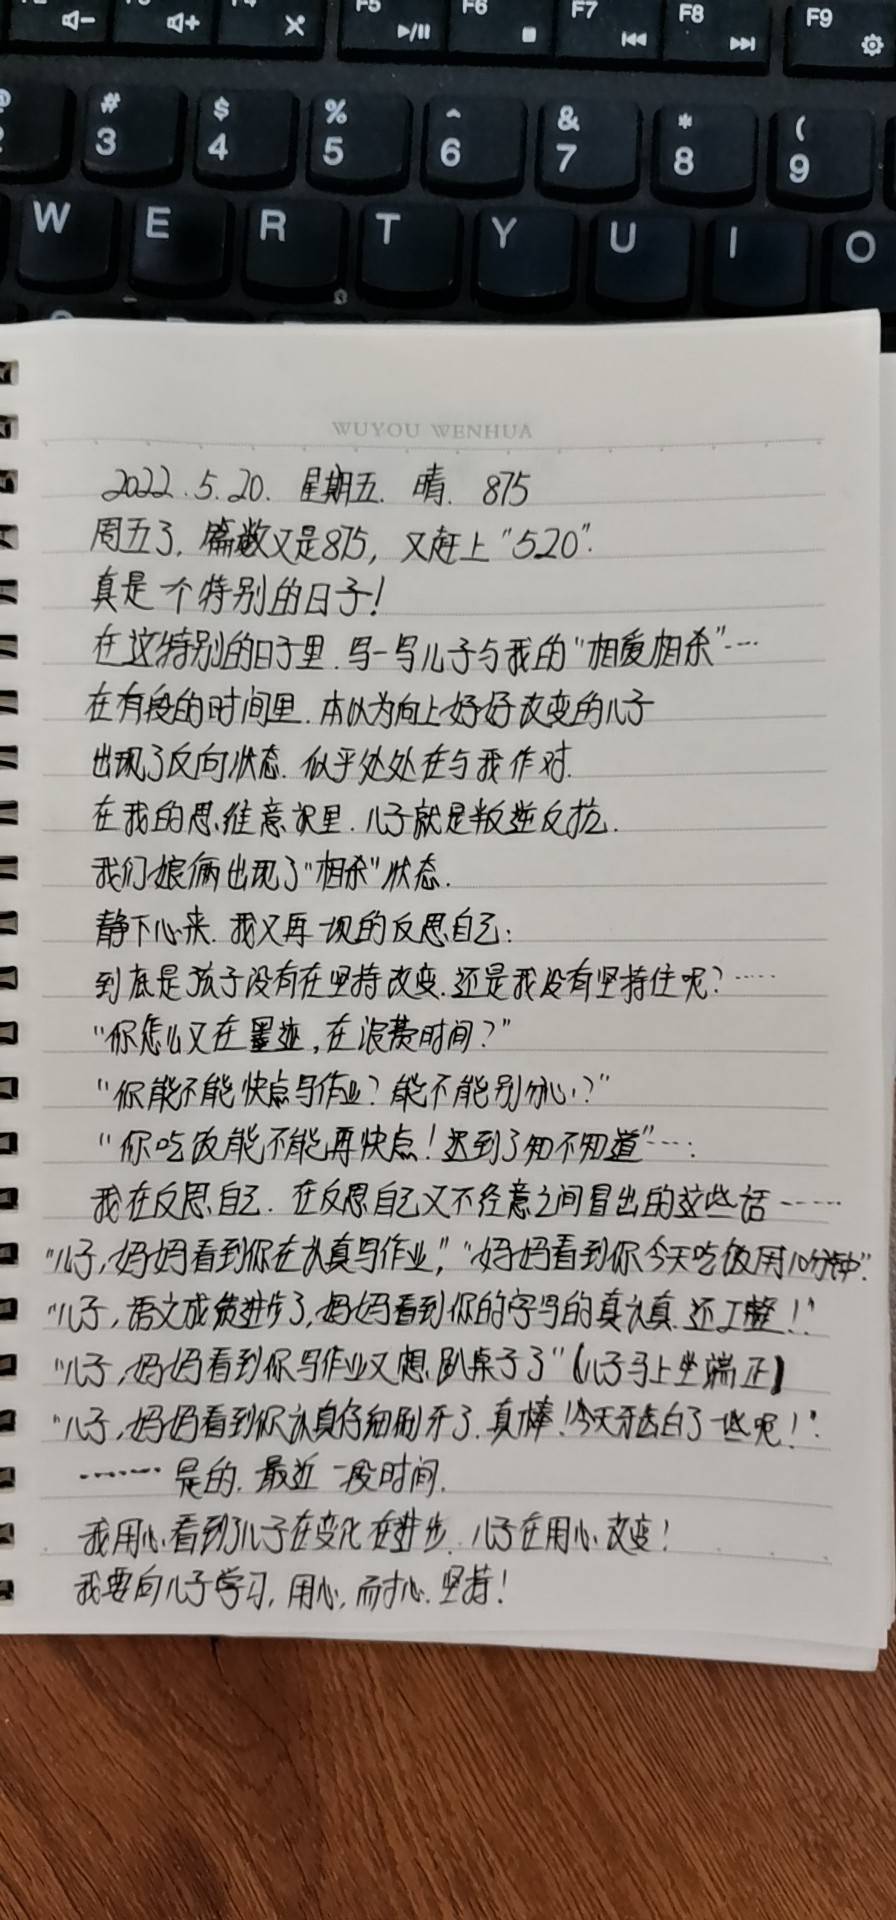 F5
F6
F7
F8
F9
#
3
$
4
%
5
^
6
&
7
*
8
(
9
W
E
R
T
Y
U
I
O
WUYOU WENHUA
2022.5.20. 星期五. 晴. 875
周五了, 篇数又是875, 又赶上“520”.
真是个特别的日子!
在这特别的日子里.写一写儿子与我的“相爱相杀”……
在有段的时间里.本以为向上好好改变的儿子
出现了反向状态.似乎处处在与我作对.
在我的思维意识里.儿子就是叛逆反抗.
我们娘俩出现了“相杀”状态.
静下心来.我又再一次的反思自己:
到底是孩子没有在坚持改变.还是我没有坚持住呢?……
“你怎么又在墨迹,在浪费时间?”
“你能不能快点写作业?能不能别分心?”
“你吃饭能不能再快点!迟到了知不知道”……
我在反思自己.在反思自己又不经意之间冒出的这些话……
“儿子,妈妈看到你在认真写作业,”“妈妈看到你今天吃饭用10分钟”.
“儿子,语文成绩进步了,妈妈看到你的字写的真认真.还工整!”
“儿子,妈妈看到你写作业又想趴桌子了”(儿子马上坐端正)
“儿子,妈妈看到你认真仔细刷牙了.真棒!今天牙齿白了一些呢!”.
……是的.最近一段时间.
我用心看到了儿子在变化在进步.儿子在用心改变!
我要向儿子学习,用心,耐心.坚持!